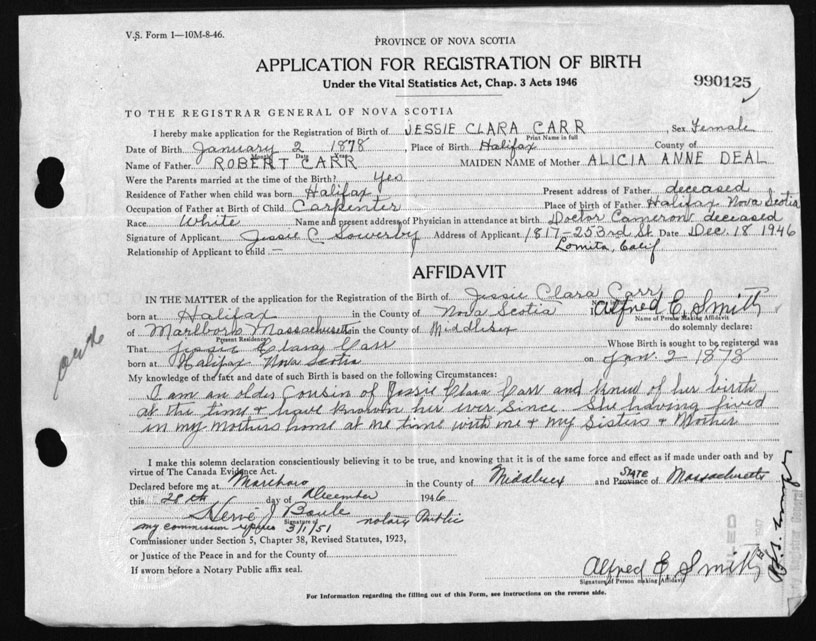 V.S. Form 1—10M-8-46.
PROVINCE OF NOVA SCOTIA
APPLICATION FOR REGISTRATION OF BIRTH
Under the Vital Statistics Act, Chap. 3 Acts 1946
990125
TO THE REGISTRAR GENERAL OF NOVA SCOTIA
I hereby make application for the Registration of Birth of JESSIE CLARA CARR, Sex Female
Print Name in full
Date of Birth January 2 1878, Place of Birth Halifax County of
Month Date Year
Name of Father ROBERT CARR MAIDEN NAME of Mother ALICIA ANNE DEAL
Were the Parents married at the time of the Birth? Yes
Residence of Father when child was born Halifax Present address of Father deceased
Occupation of Father at Birth of Child Carpenter Place of birth of Father Halifax Nova Scotia
Race White Name and present address of Physician in attendance at birth Doctor Cameron deceased
Signature of Applicant Jessie C Sowerby Address of Applicant 1817-253rd St. Date Dec. 18 1946
Relationship of Applicant to child — Lomita, Calif
AFFIDAVIT
IN THE MATTER of the application for the Registration of the Birth of Jessie Clara Carr
born at Halifax in the County of Nova Scotia I Alfred E. Smith
Name of Person Making Affidavit
of Marlboro Massachusetts in the County of Middlesex do solemnly declare:
Present Residence
That Jessie Clara Carr Whose Birth is sought to be registered was
born at Halifax Nova Scotia on Jan. 2 1878
My knowledge of the fact and date of such Birth is based on the following Circumstances:
I am an older Cousin of Jessie Clara Carr and knew of her birth
at the time & have known her ever since. She having lived
in my Mothers home at one time with me & my Sisters & Mother
I make this solemn declaration conscientiously believing it to be true, and knowing that it is of the same force and effect as if made under oath and by
virtue of The Canada Evidence Act.
Declared before me at Marlboro in the County of Middlesex and Province of STATE Massachusetts
this 28th day of December 1946
J Notary Public
Signature of
my commission expires 3/1/51
Commissioner under Section 5, Chapter 38, Revised Statutes, 1923,
or Justice of the Peace in and for the County of
If sworn before a Notary Public affix seal.
Alfred E. Smith
Signature of Person making Affidavit
For Information regarding the filling out of this Form, see instructions on the reverse side.